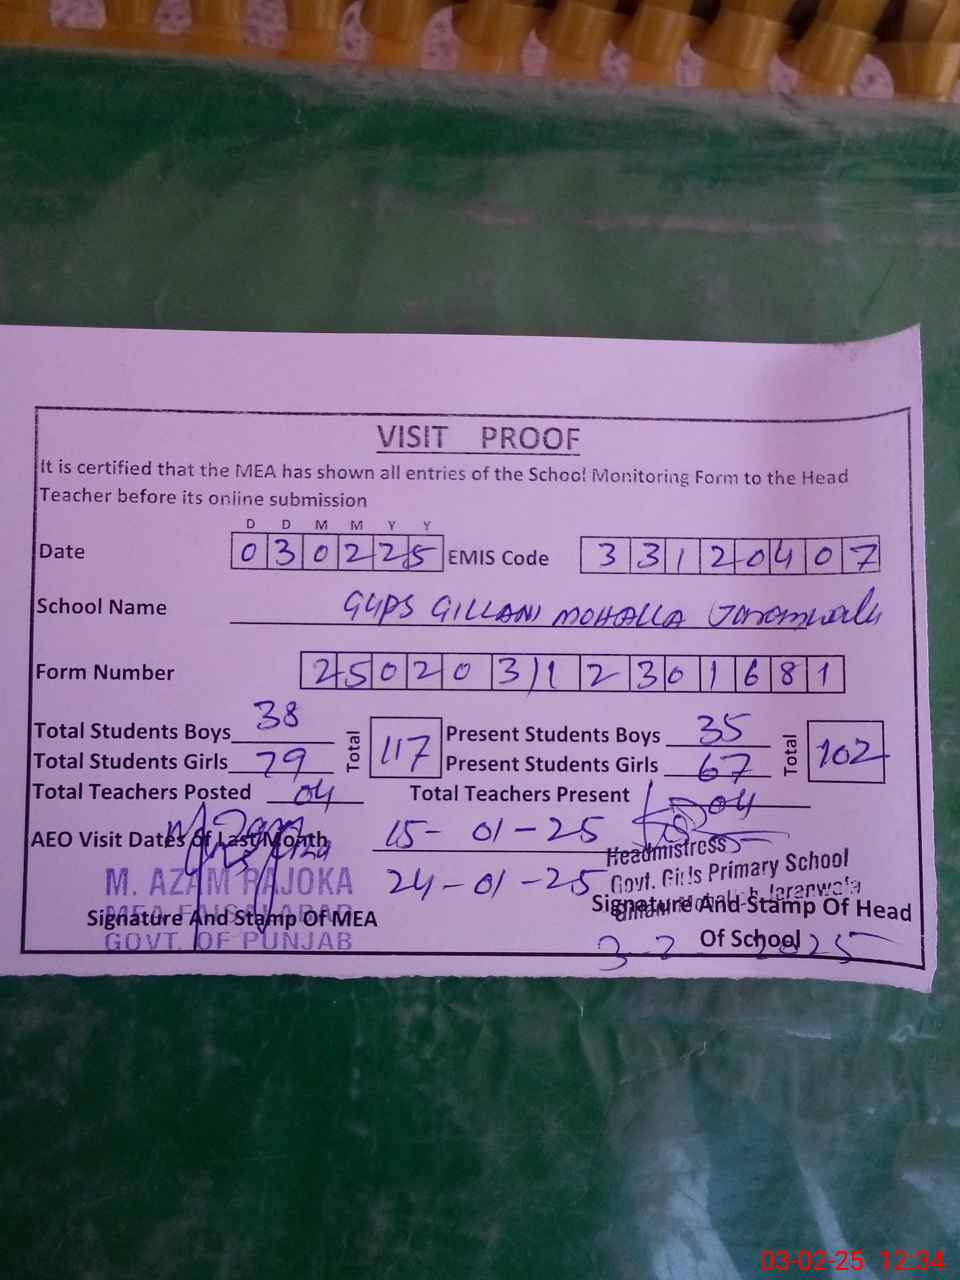 VISIT PROOF
It is certified that the MEA has shown all entries of the School Monitoring Form to the Head
Teacher before its online submission
D D M M Y Y
Date 030225 EMIS Code 33120407
School Name GGPS GILLANI MOHALLA Jaranwala
Form Number 250203112301681
Total Students Boys 38 Total 117 Present Students Boys 35 Total 102
Total Students Girls 79 Present Students Girls 67
Total Teachers Posted 04 Total Teachers Present 04
AEO Visit Dates Of Last Month 15-01-25
24-01-25
M. AZAM RAJOKA
MEA FAISALABAD
GOVT. OF PUNJAB
Signature And Stamp Of MEA
Headmistress
Govt. Girls Primary School
Jaranwala
Signature And Stamp Of Head
Of School
3-2-2025
03-02-25 12:34